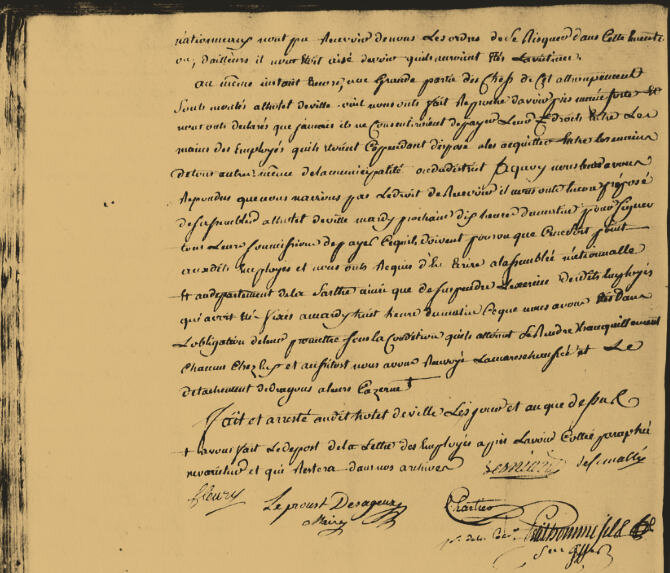 nationneaux nont pu Recevoir de nous Les ordres de Se Risquer dans Cette
on, dailleurs il nous Etoit aisé de voir quils auroient Etés Les victimes
au même instant encore, une Grande partie des Chefs de Cet attroupement
Sont montés alhotel deville ont nous onts fait Reproche davoir pris main forte Et
nous onts declarés que jamais ils ne Consentiroient depayer Leurs droits Entre Les
mains des Employés quils etoient Cependant disposé ales acquitter Entre Les mains
de tous autres même de la municipalité ou du district aquoy nous Leurs avons
Repondus que nous navions pas Le droit de Recevoir il nous onts Encore proposé
de sassembler alhotel deville mardy prochain dix heure du matin pour Signer
tous Leurs Soumissions de payer Ce quils doivent pourvu que Ce ne Soit point
auxdits Employés et nous onts Requis d'En Ecrire alassemblée nationnalle
Et audepartement dela Sarthe ainsi que de suspendre Lexercice desdits Employés
qui avoit Eté fixés a mardy huit heure du matin Ce que nous avons Etés dans
Lobligation de leur promettre Sous la Condition quils alloient Se Rendre tranquillement
Chacuns Chez Eux et aussitost nous avons Renvoyé La marechaussée et Le
detachement de dragons a leurs Cazerne
fait et arresté audit hotel deville Les jour et an que depuis
+ Lavons fait Le depost de la Lettre des Employés après Lavoir Cottée paraphée
ne varietur et qui Restera dans nos archives
fleury Le proust Desageux
Maire
Chartier